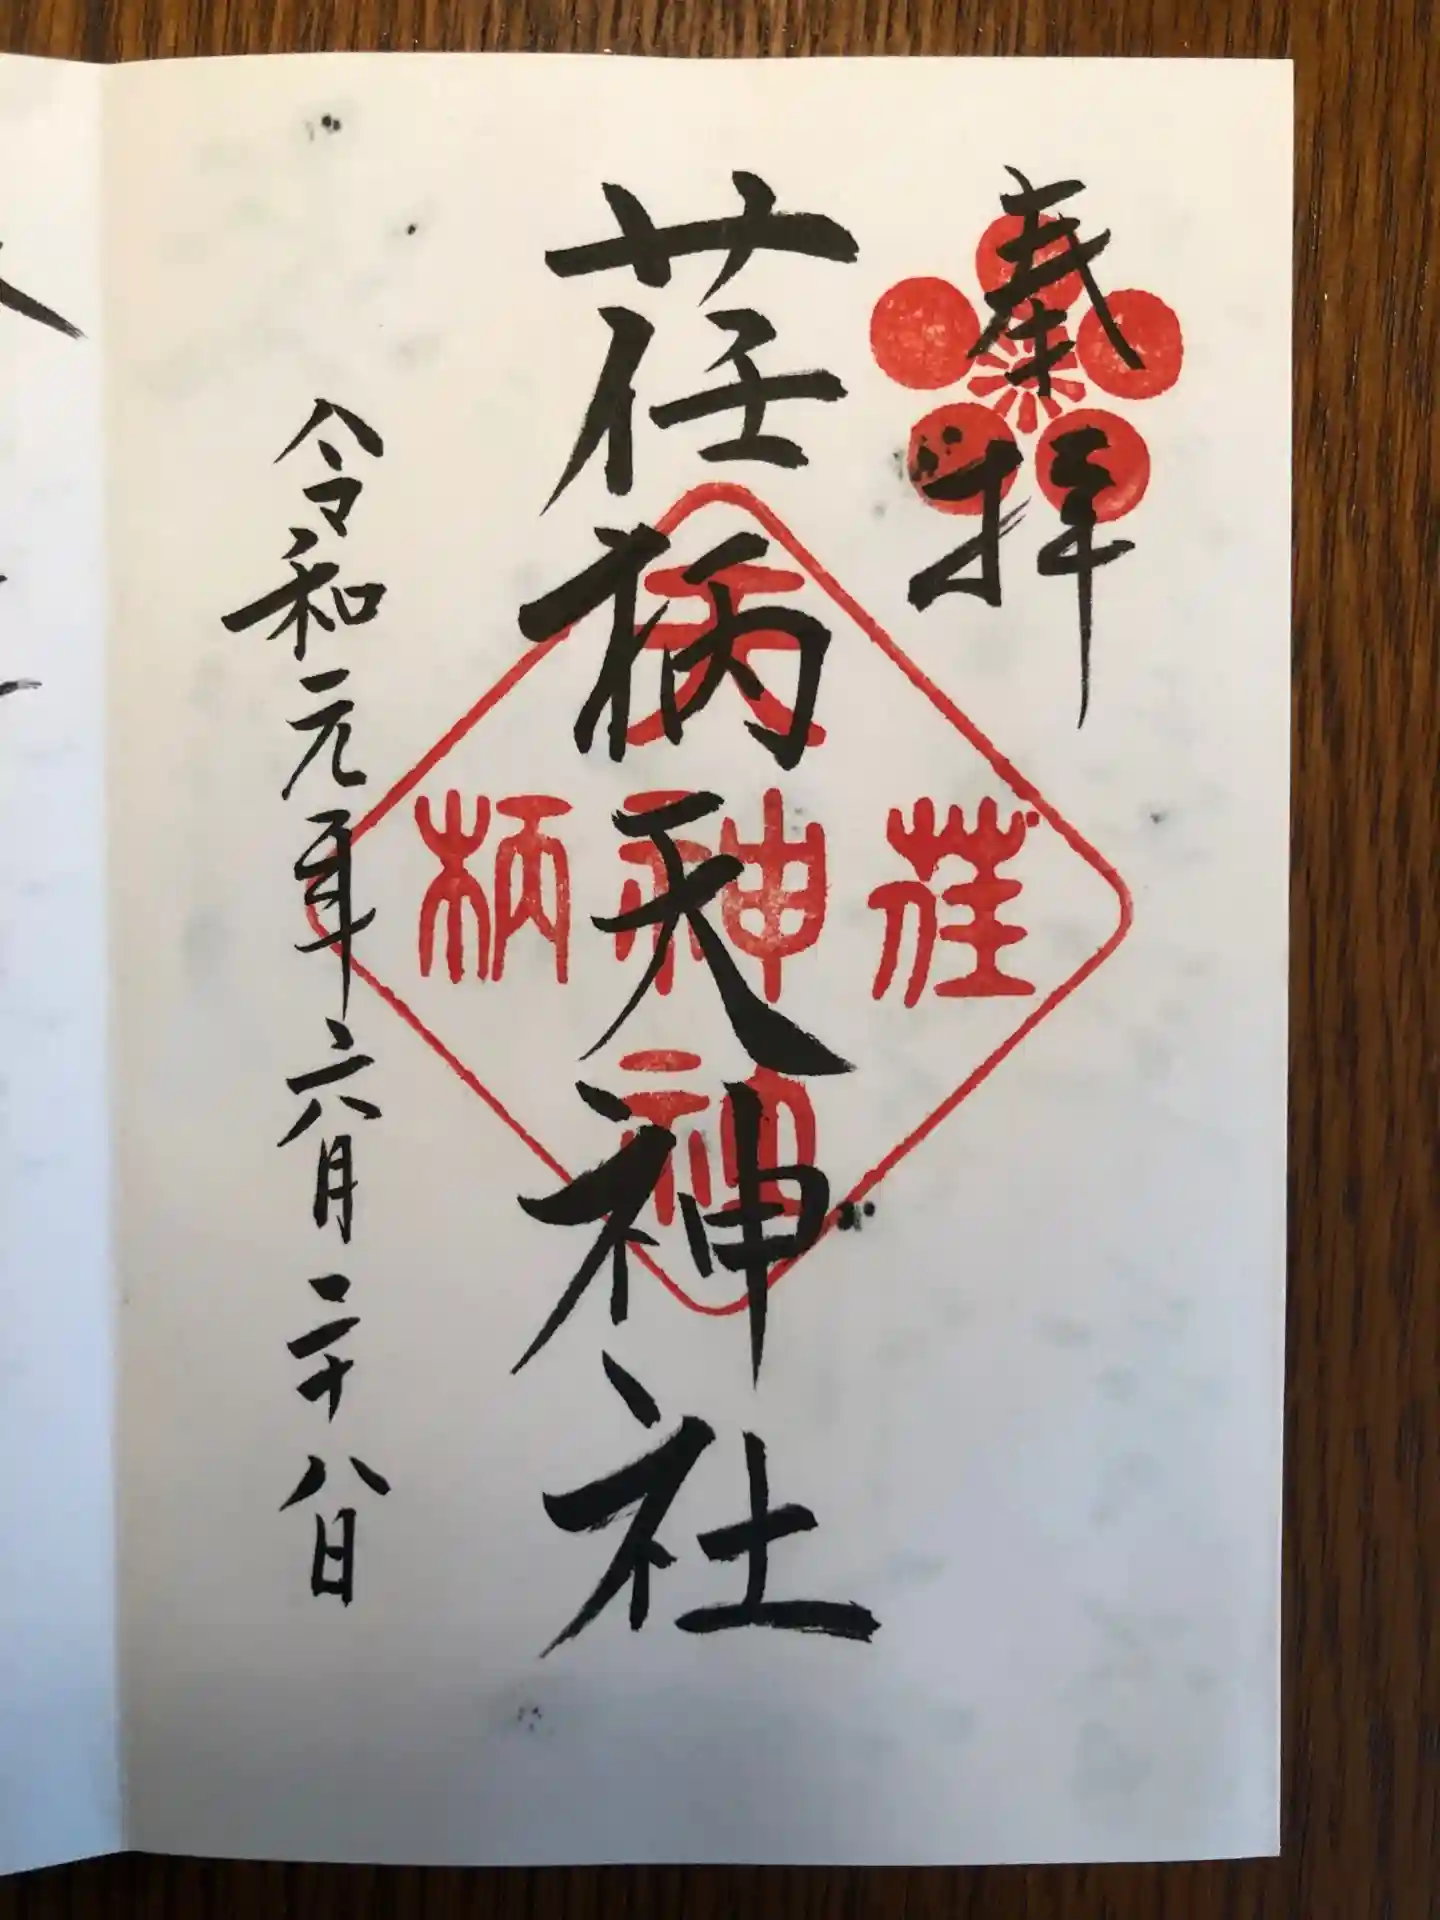 奉拝
荏柄天神社
令和元年六月二十八日
天
荏神柄
神